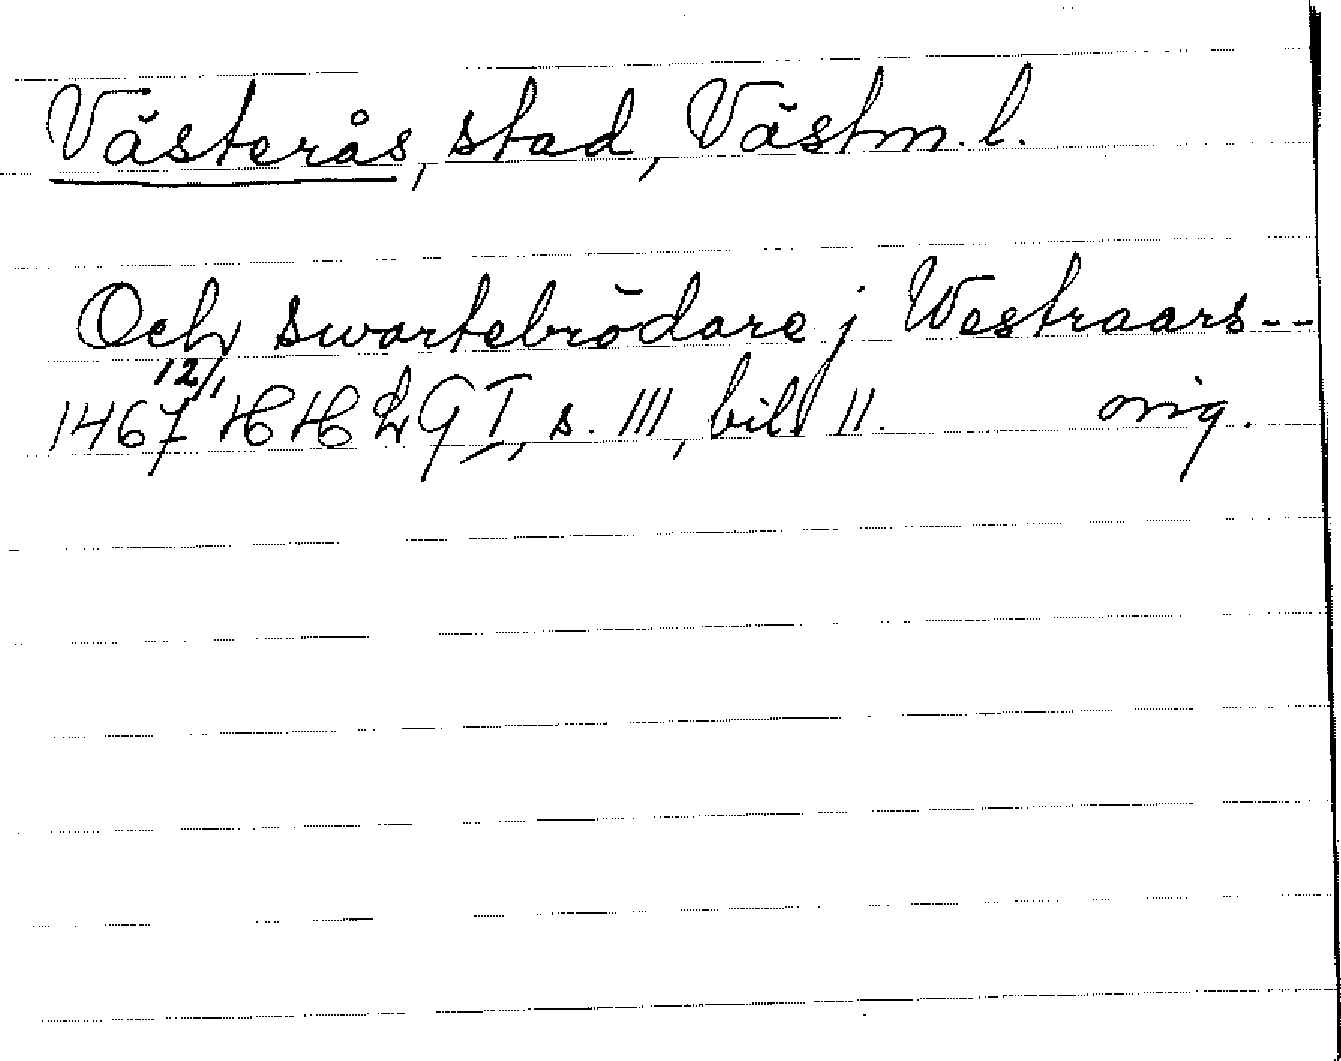 Västerås, stad, Västm. l.
Och swartebrödare j Westraars--
12/1
1467 HH LG I, s. III, bil. II. orig.